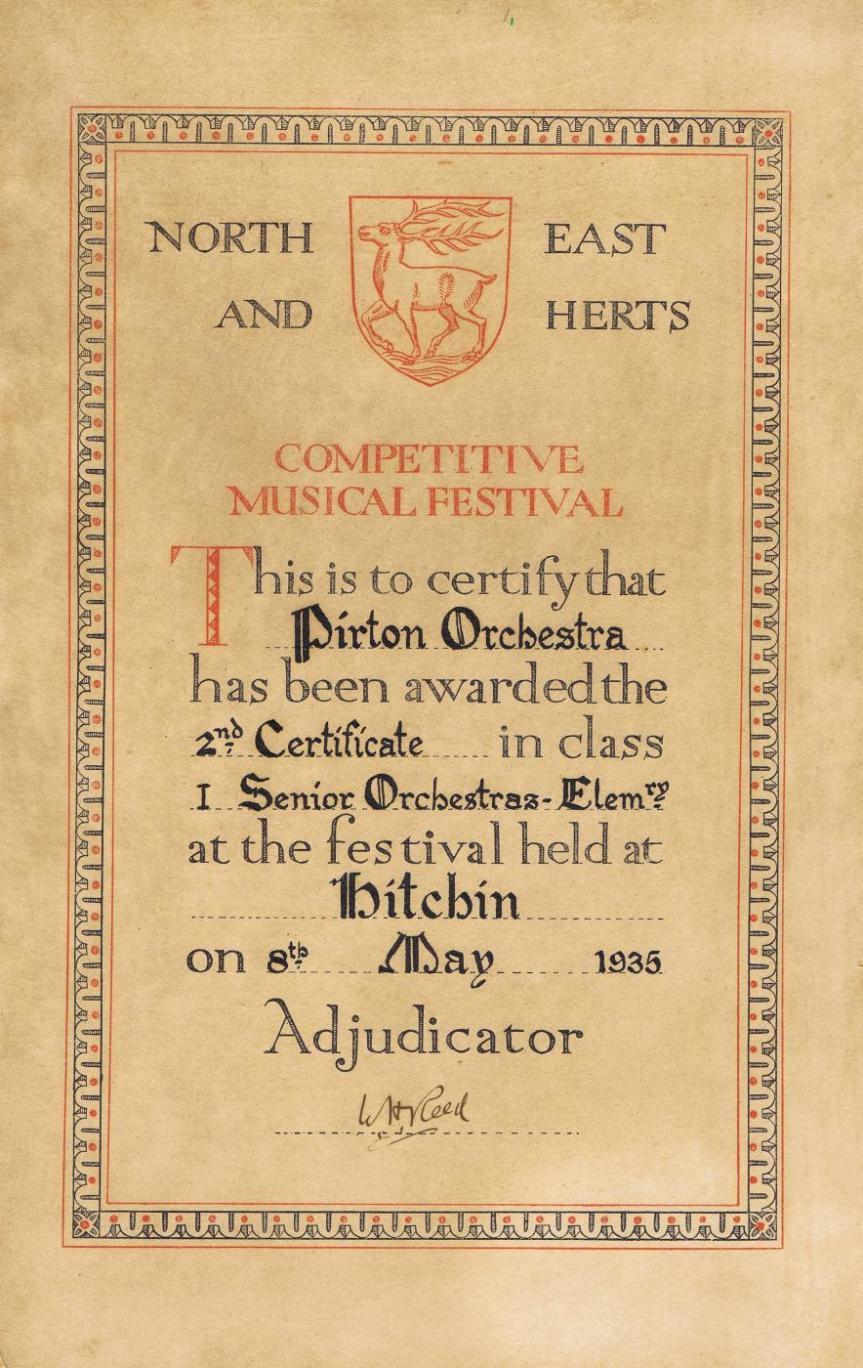 NORTH EAST
AND HERTS
COMPETITIVE
MUSICAL FESTIVAL
This is to certify that
Pirton Orchestra
has been awarded the
2nd Certificate in class
I Senior Orchestras - Elemry
at the festival held at
Hitchin
on 8th May 1935
Adjudicator
W H Reed